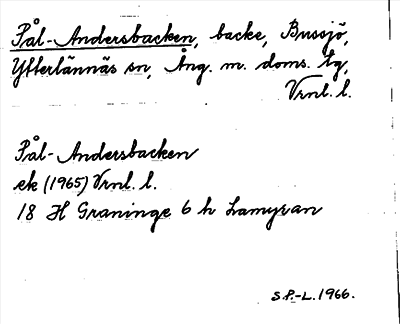 Pål-Andersbacken, backe, Bussjö,
Ytterlännäs sn, Ång. m. doms. tg,
Vrnl. l.
Pål-Andersbacken
ek (1965) Vrnl. l.
18 H Graninge 6 h Lamyran
S.P.-L. 1966.